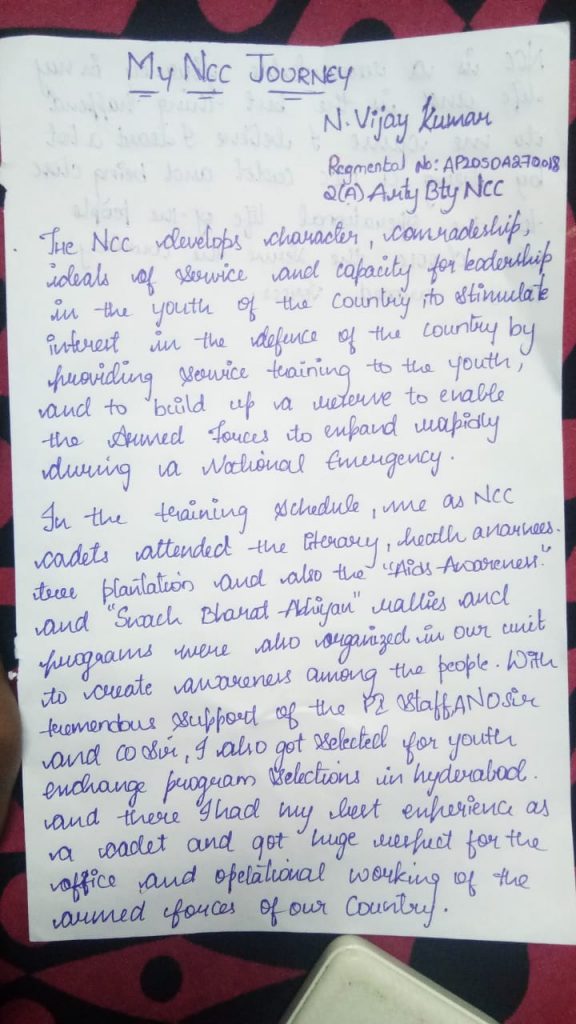 MY NCC JOURNEY
N. Vijay Kumar
Regmental No: AP20SDA270018
2(A) Arty Bty NCC
THE NCC develops character, comradeship,
ideals of service and capacity for leadership
in the youth of the country to stimulate
interest in the defence of the country by
providing service training to the youth,
and to build up a reserve to enable
the Armed Forces to expand rapidly
during a National Emergency.
In the training schedule, me as NCC
cadets attended the literary, health awarnees.
tree plantation and also the "Aids Awareness"
and "Swach Bharat Abhiyan" rallies and
programs were also organized in our unit
to create awareness among the people. With
tremendous support of the PI Staff, ANO sir
and CO sir, I also got selected for youth
exchange program selections in hyderabad.
and there I had my best experience as
a cadet and got huge respect for the
office and opelational working of the
armed forces of our country.